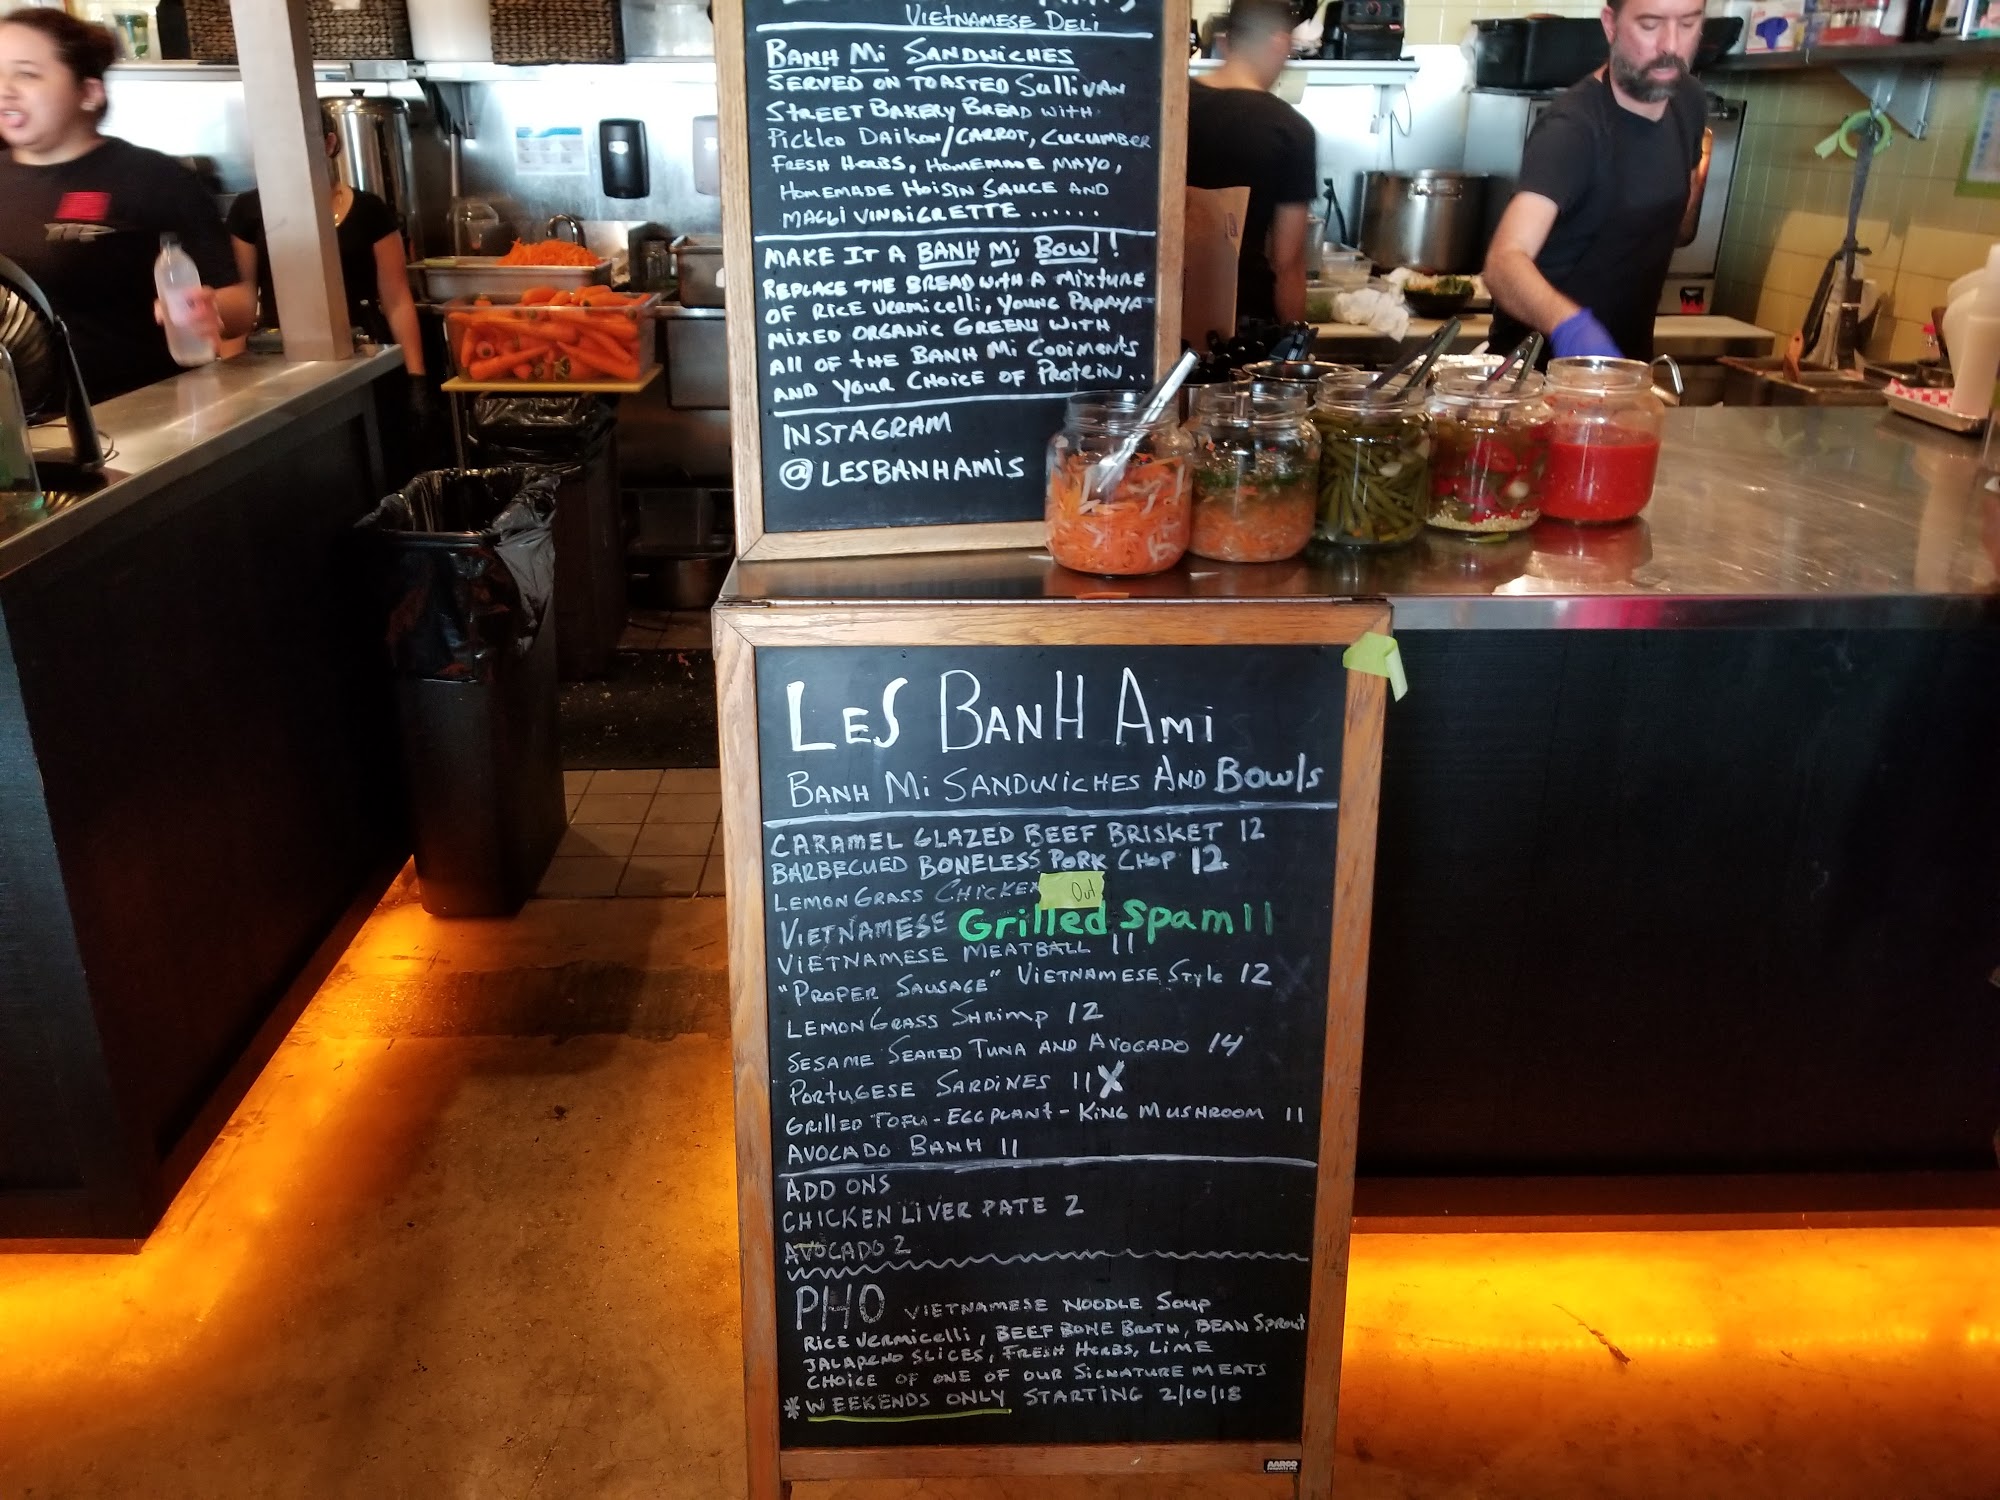 VIETNAMESE DELI
BANH Mi SANDWICHES
SERVED ON TOASTED SulliVAN
STREET BAKERY BREAD WITH
Pickled Daikon/CARROT, CUCUMBER
FRESH HERBS, HOMEMADE MAYO,
HOMEMADE HOISIN SAUCE AND
MAGGI VINAIGRETTE ......
MAKE IT A BANH Mi Bowl!
REPLACE THE BREAD WITH A MIXTURE
OF RICE VERMICELLI, YOUNG PAPAYA
MIXED ORGANIC GREENS WITH
All OF THE BANH Mi CODIMENTS
AND YOUR CHOICE OF PROTEIN..
INSTAGRAM
@LESBANHAMIS
LES BANH AMi
BANH Mi SANDWICHES AND Bowls
CARAMEL GLAZED BEEF BRISKET 12
BARBECUED BONELESS PORK CHOP 12
LEMONGRASS CHICKEN Out
VIETNAMESE Grilled Spam 11
VIETNAMESE MEATBALL 11
"PROPER SAUSAGE" VIETNAMESE Style 12
LEMONGRASS SHRIMP 12
SESAME SEARED TUNA AND AVOCADO 14
PORTUGESE SARDINES 11 X
GRILLED TOFU - EGGPLANT - KING MUSHROOM 11
AVOCADO BANH 11
ADD ONS
CHICKEN LIVER PATE 2
AVOCADO 2
PHO VIETNAMESE NOODLE Soup
RICE VERMICELLI, BEEF BONE BROTH, BEAN Sprout
JALAPENO SLICES, FRESH HERBS, LIME
CHOICE OF ONE OF OUR SIGNATURE MEATS
* WEEKENDS ONLY STARTING 2/10/18
AARCO